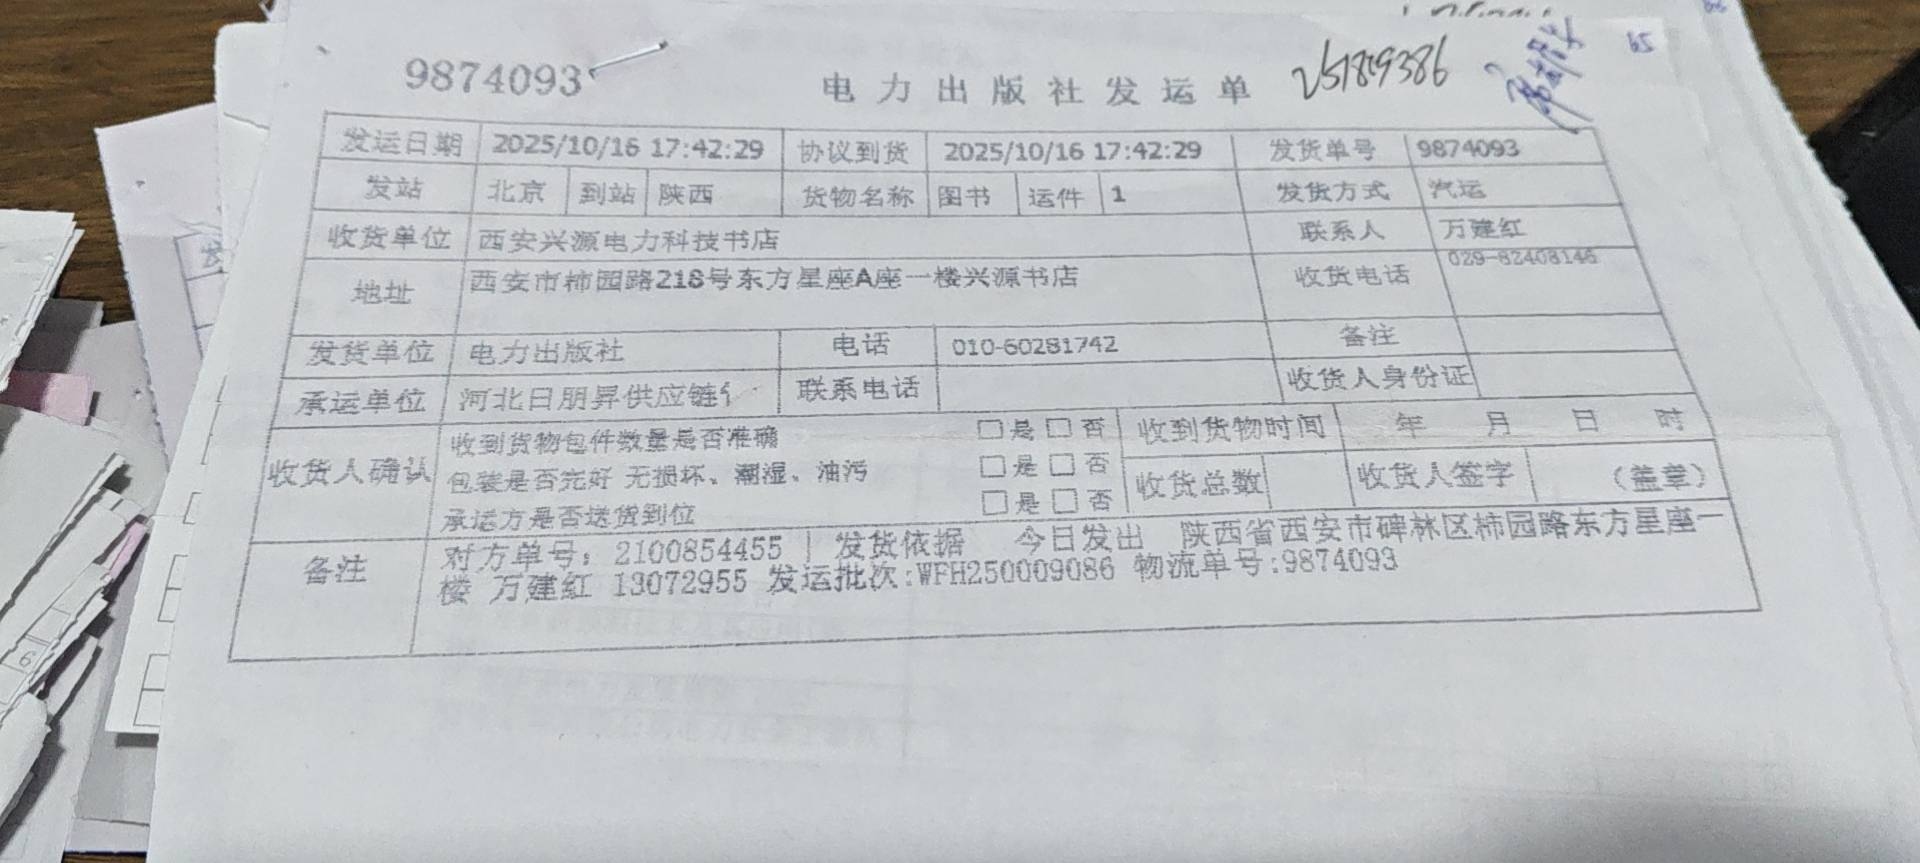 9874093
电力出版社发运单
65
发运日期 2025/10/16 17:42:29 协议到货 2025/10/16 17:42:29 发货单号 9874093
发站 北京 到站 陕西 货物名称 图书 运件 1 发货方式 汽运
收货单位 西安兴源电力科技书店 联系人 万建红
地址 西安市柿园路218号东方星座A座一楼兴源书店 收货电话 029-82408146
发货单位 电力出版社 电话 010-60281742 备注
承运单位 河北日朋昇供应链 联系电话 收货人身份证
收货人确认 收到货物包件数量是否准确 □是□否 收到货物时间 年 月 日 时
包装是否完好 无损坏、潮湿、油污 □是□否 收货总数 收货人签字 （盖章）
承运方是否送货到位 □是□否
备注 对方单号：2100854455 | 发货依据 今日发出 陕西省西安市碑林区柿园路东方星座一
楼 万建红 13072955 发运批次:WFH250009086 物流单号:9874093